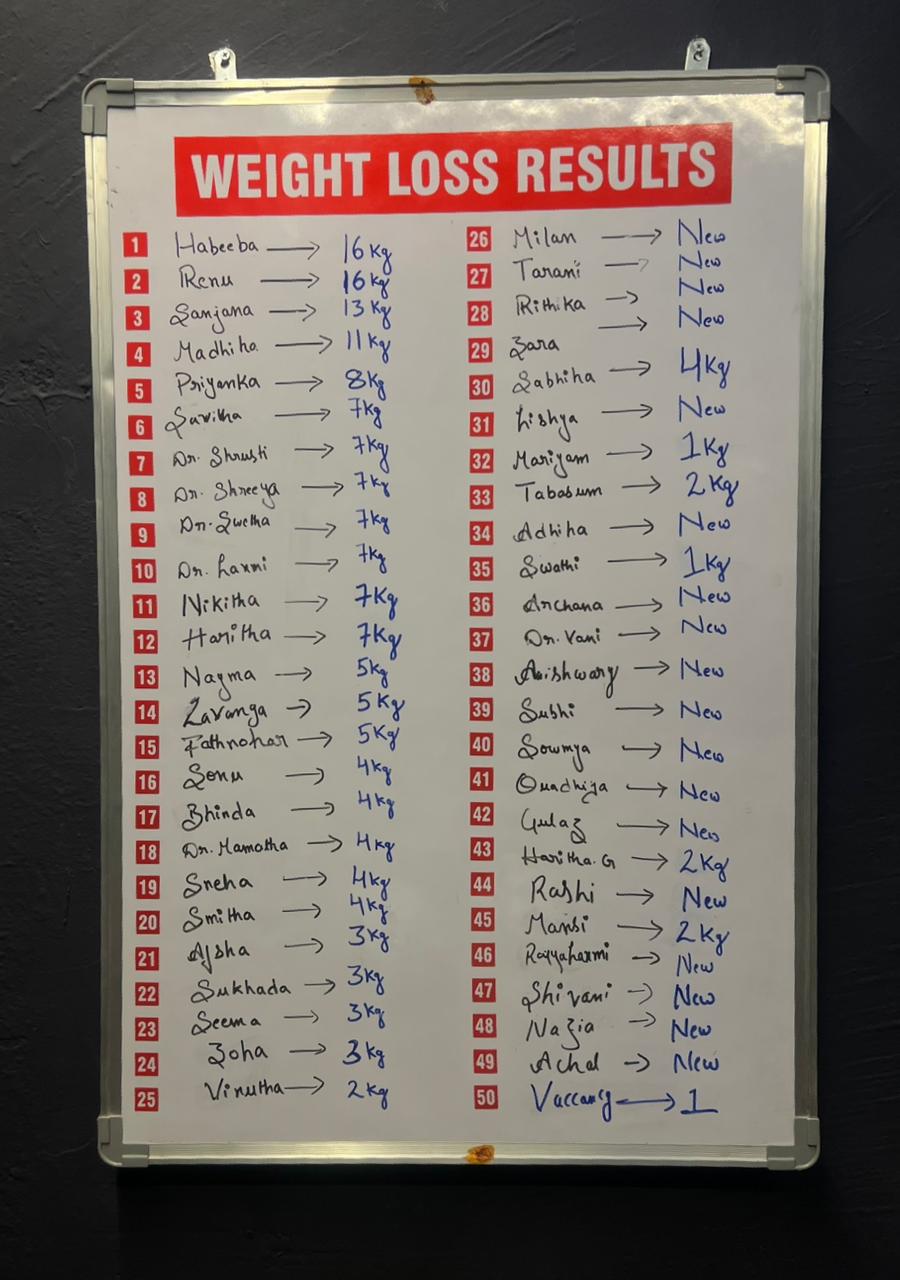 WEIGHT LOSS RESULTS
1 Habeeba → 16 Kg
2 Renu → 16 kg
3 Sanjana → 13 Kg
4 Madhiha → 11 Kg
5 Priyanka → 8 Kg
6 Savitha → 7kg
7 Dr. Shrusti → 7kg
8 Dr. Shreeya → 7kg
9 Dr. Swetha → 7kg
10 Dr. Laxmi → 7kg
11 Nikitha → 7Kg
12 Haritha → 7Kg
13 Nagma → 5kg
14 Lavanga → 5 Kg
15 Fathnohar → 5Kg
16 Sonu → 4kg
17 Bhinda → 4kg
18 Dr. Mamatha → 4kg
19 Sneha → 4kg
20 Smitha → 4kg
21 Ajsha → 3kg
22 Sukhada → 3kg
23 Seema → 3kg
24 Zoha → 3kg
25 Vinutha → 2kg
26 Milan → New
27 Tarani → New
28 Rithika → New
29 Zara → New
30 Sabhiha → 4Kg
31 Lishya → New
32 Mariyam → 1Kg
33 Tabasum → 2Kg
34 Adhiha → New
35 Swathi → 1Kg
36 Archana → New
37 Dr. Vani → New
38 Aishwary → New
39 Subhi → New
40 Sowmya → New
41 → New
42 Gulaz → New
43 Haritha. G → 2Kg
44 Rashi → New
45 Mansi → 2Kg
46 → New
47 Shivani → New
48 Nazia → New
49 Achal → New
50 Vaccancy → 1